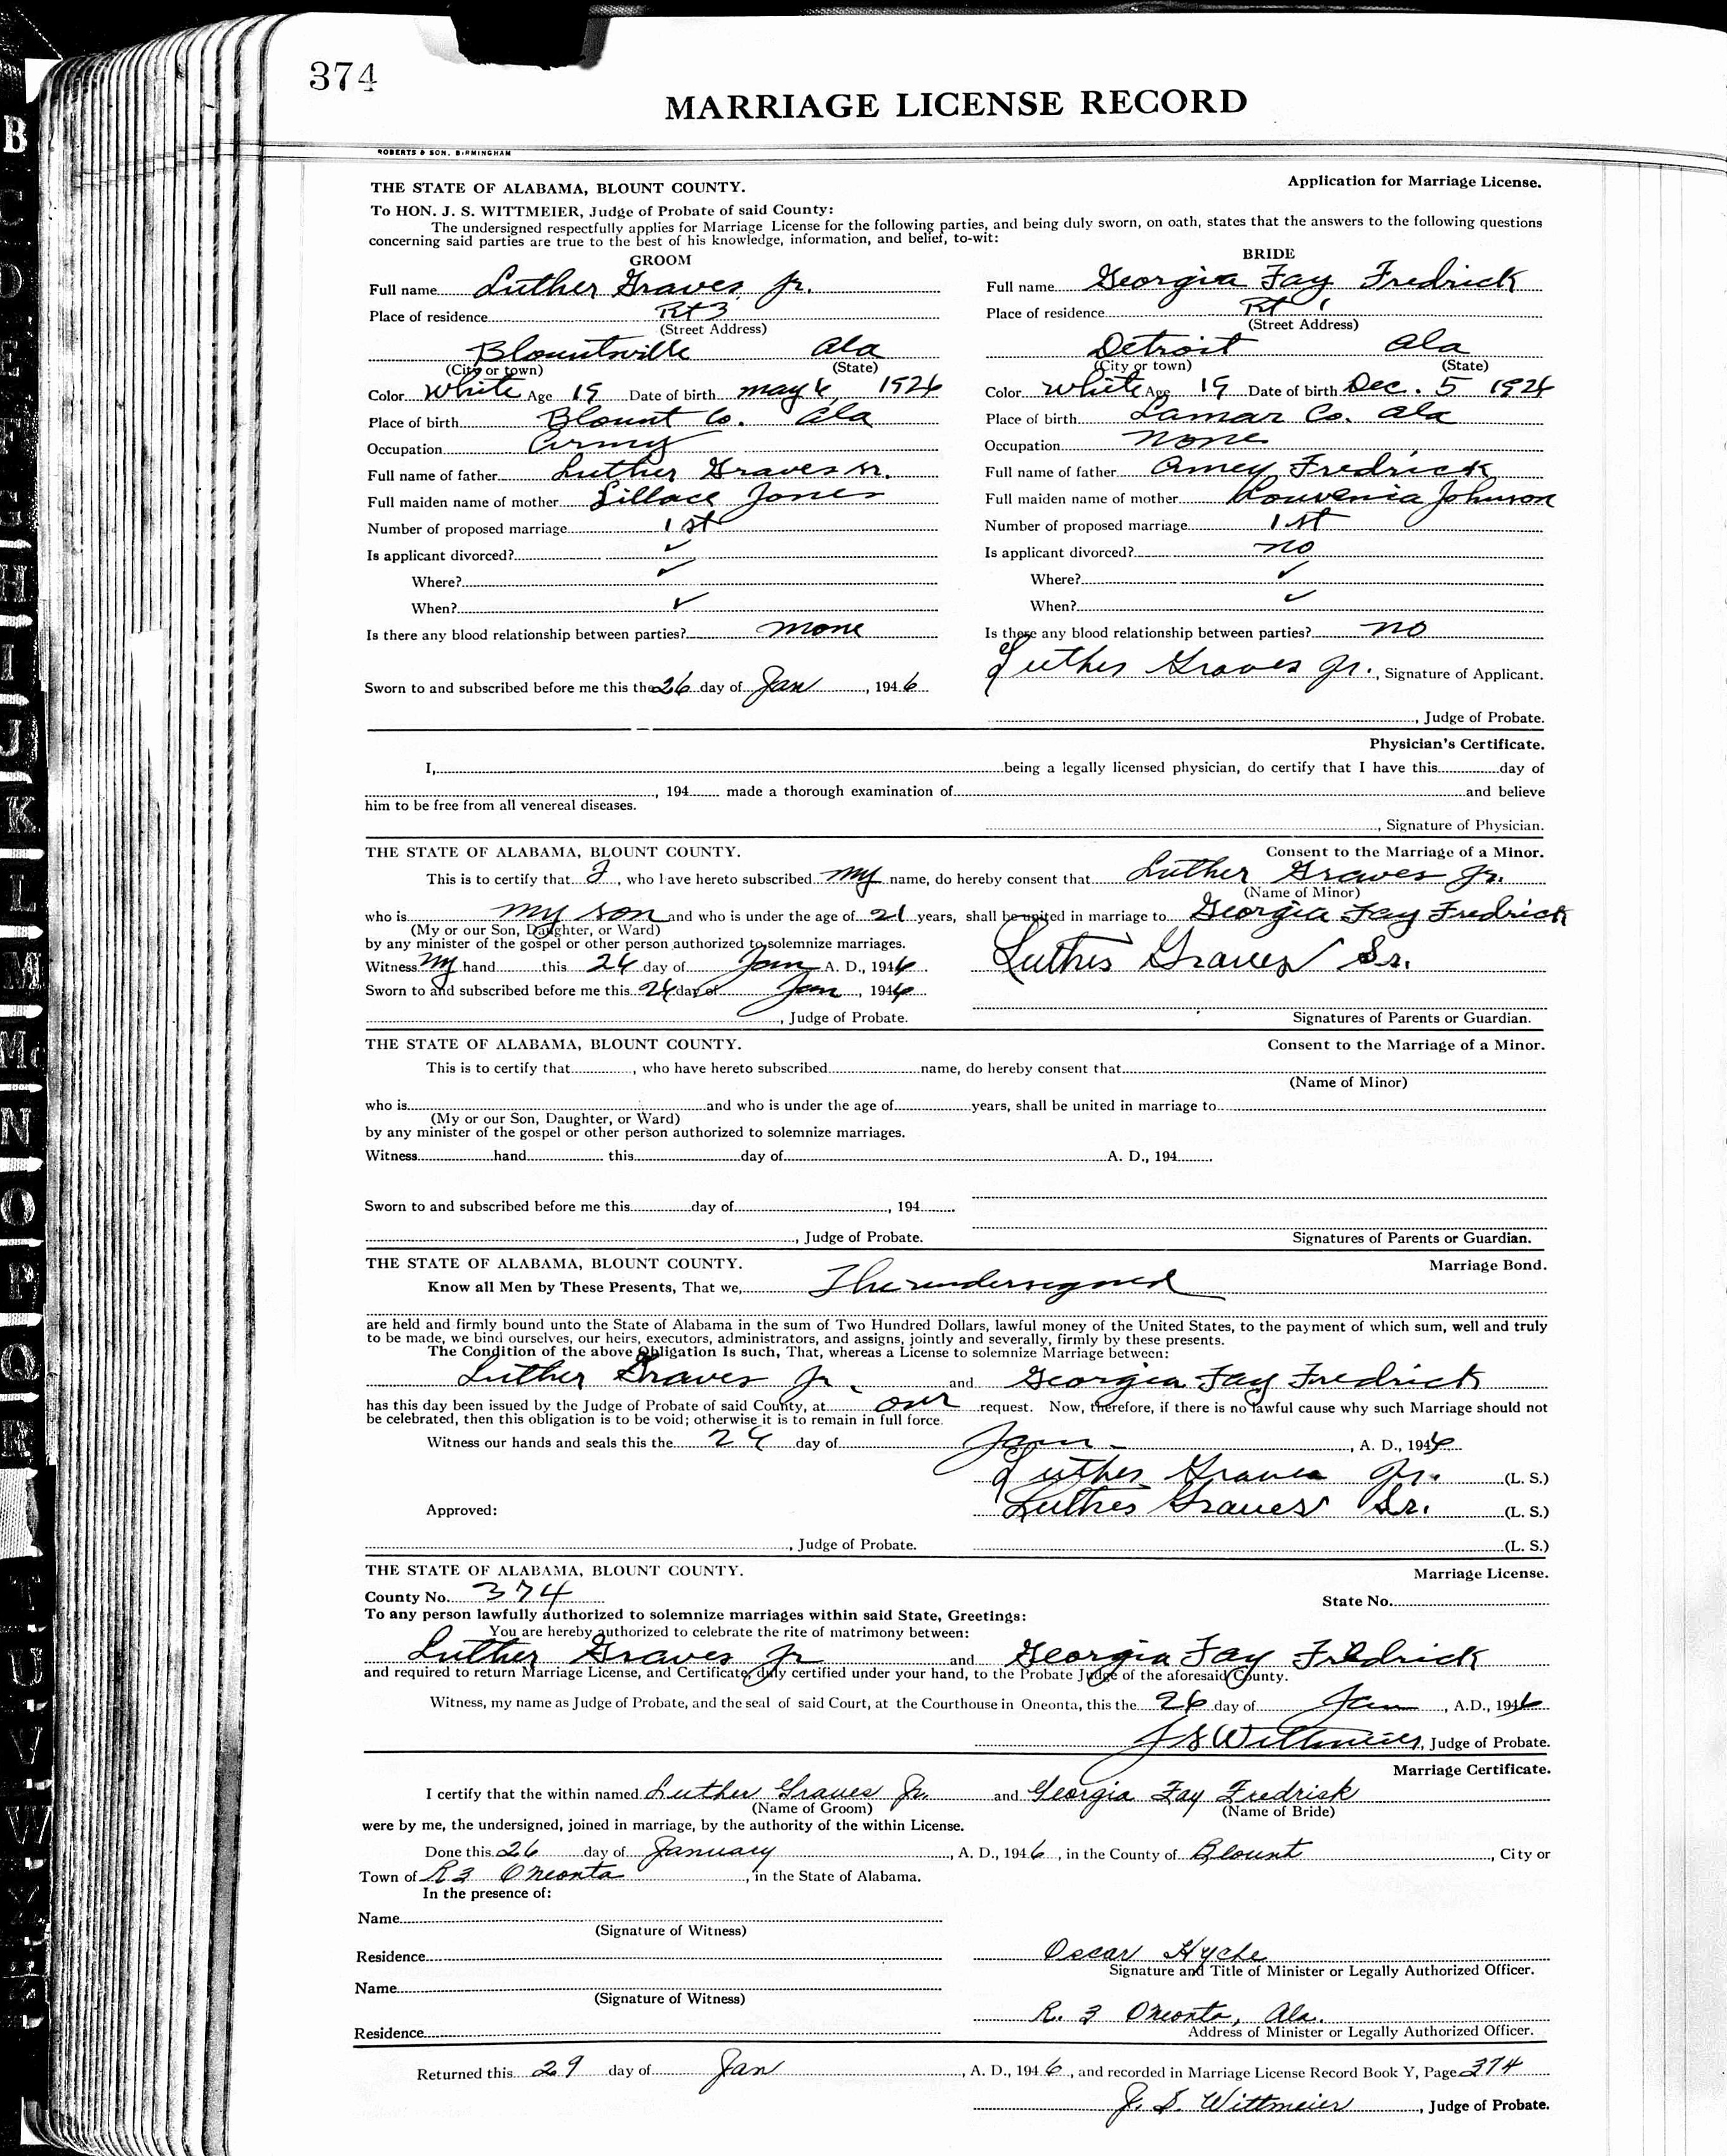 374
MARRIAGE LICENSE RECORD
ROBERTS & SON, BIRMINGHAM
THE STATE OF ALABAMA, BLOUNT COUNTY. Application for Marriage License.
To HON. J. S. WITTMEIER, Judge of Probate of said County:
The undersigned respectfully applies for Marriage License for the following parties, and being duly sworn, on oath, states that the answers to the following questions
concerning said parties are true to the best of his knowledge, information, and belief, to-wit:
GROOM BRIDE
Full name Luther Graves Jr. Full name Georgia Fay Fredrick
Place of residence Rt 3 Place of residence Rt 1
(Street Address) (Street Address)
Blountsville Ala Detroit Ala
(City or town) (State) (City or town) (State)
Color White Age 19 Date of birth May 6, 1926 Color White Age 19 Date of birth Dec. 5 1926
Place of birth Blount Co. Ala Place of birth Lamar Co. Ala
Occupation Army Occupation None
Full name of father Luther Graves Sr. Full name of father Amey Fredrick
Full maiden name of mother Jones Full maiden name of mother Louvenia Johnson
Number of proposed marriage 1st Number of proposed marriage 1st
Is applicant divorced? ✓ Is applicant divorced? no
Where? ✓ Where? ✓
When? ✓ When? ✓
Is there any blood relationship between parties? none Is there any blood relationship between parties? no
Luther Graves Jr., Signature of Applicant.
Sworn to and subscribed before me this the 26 day of Jan, 1946
, Judge of Probate.
Physician's Certificate.
I, being a legally licensed physician, do certify that I have this day of
, 194 made a thorough examination of and believe
him to be free from all venereal diseases.
, Signature of Physician.
THE STATE OF ALABAMA, BLOUNT COUNTY. Consent to the Marriage of a Minor.
This is to certify that I, who have hereto subscribed my name, do hereby consent that Luther Graves Jr.
(Name of Minor)
who is my son and who is under the age of 21 years, shall be united in marriage to Georgia Fay Fredrick
(My or our Son, Daughter, or Ward)
by any minister of the gospel or other person authorized to solemnize marriages.
Witness my hand this 26 day of Jan A. D., 1946. Luther Graves Sr.
Sworn to and subscribed before me this 26 day of Jan, 1946
, Judge of Probate. Signatures of Parents or Guardian.
THE STATE OF ALABAMA, BLOUNT COUNTY. Consent to the Marriage of a Minor.
This is to certify that , who have hereto subscribed name, do hereby consent that
(Name of Minor)
who is and who is under the age of years, shall be united in marriage to
(My or our Son, Daughter, or Ward)
by any minister of the gospel or other person authorized to solemnize marriages.
Witness hand this day of A. D., 194
Sworn to and subscribed before me this day of , 194
, Judge of Probate. Signatures of Parents or Guardian.
THE STATE OF ALABAMA, BLOUNT COUNTY. Marriage Bond.
Know all Men by These Presents, That we, The undersigned
are held and firmly bound unto the State of Alabama in the sum of Two Hundred Dollars, lawful money of the United States, to the payment of which sum, well and truly
to be made, we bind ourselves, our heirs, executors, administrators, and assigns, jointly and severally, firmly by these presents.
The Condition of the above Obligation Is such, That, whereas a License to solemnize Marriage between:
Luther Graves Jr. and Georgia Fay Fredrick
has this day been issued by the Judge of Probate of said County, at our request. Now, therefore, if there is no lawful cause why such Marriage should not
be celebrated, then this obligation is to be void; otherwise it is to remain in full force.
Witness our hands and seals this the 26 day of Jan, A. D., 1946
Luther Graves Jr. (L. S.)
Approved: Luther Graves Sr. (L. S.)
, Judge of Probate. (L. S.)
THE STATE OF ALABAMA, BLOUNT COUNTY. Marriage License.
County No. 374 State No.
To any person lawfully authorized to solemnize marriages within said State, Greetings:
You are hereby authorized to celebrate the rite of matrimony between:
Luther Graves Jr and Georgia Fay Fredrick
and required to return Marriage License, and Certificate, duly certified under your hand, to the Probate Judge of the aforesaid County.
Witness, my name as Judge of Probate, and the seal of said Court, at the Courthouse in Oneonta, this the 26 day of Jan, A.D., 1946
J S Wittmeier, Judge of Probate.
Marriage Certificate.
I certify that the within named Luther Graves Jr. and Georgia Fay Fredrick
(Name of Groom) (Name of Bride)
were by me, the undersigned, joined in marriage, by the authority of the within License.
Done this 26 day of January, A. D., 1946, in the County of Blount, City or
Town of R3 Oneonta, in the State of Alabama.
In the presence of:
Name
(Signature of Witness)
Residence Oscar Hyche
Signature and Title of Minister or Legally Authorized Officer.
Name
(Signature of Witness)
R. 3 Oneonta, Ala.
Residence Address of Minister or Legally Authorized Officer.
Returned this 29 day of Jan, A. D., 1946, and recorded in Marriage License Record Book Y, Page 374
J. S. Wittmeier, Judge of Probate.
B
C
D
E
F
G
H
I
J
K
L
M
Mc
N
O
P
Q
R
T
U
V
W